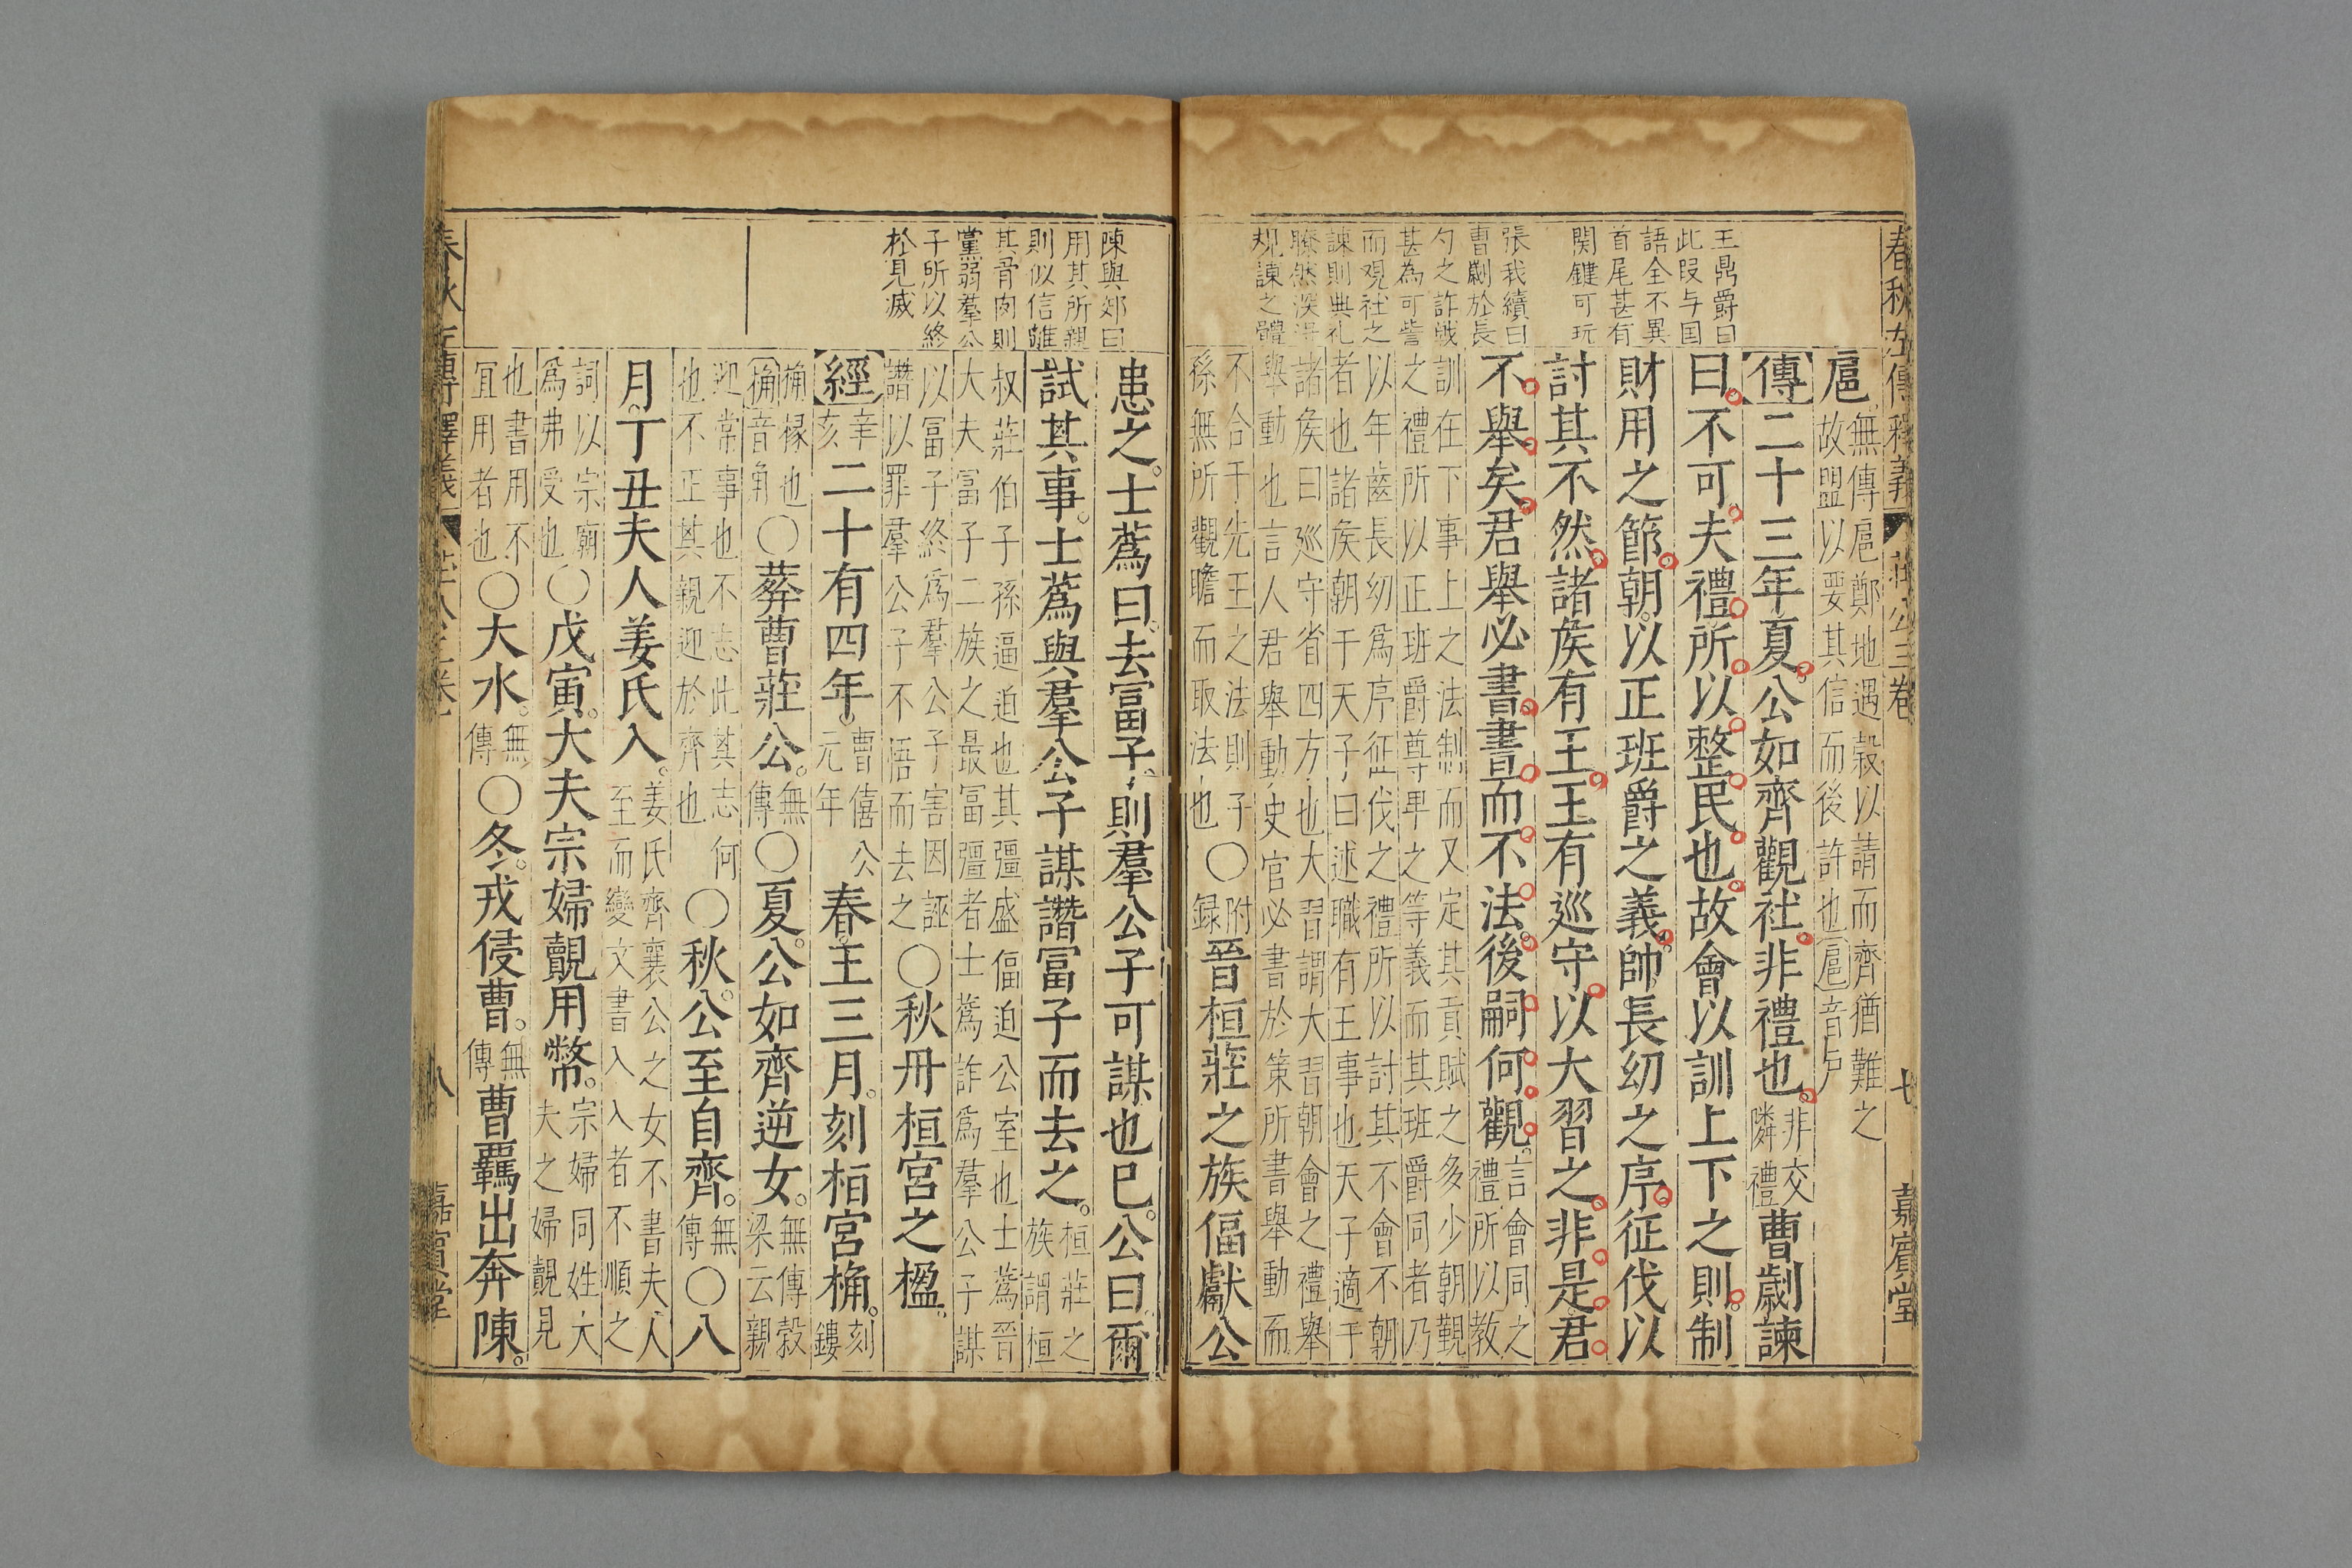 春秋左傳釋義 莊公三卷 七 嘉賓堂
王鼎爵曰
此段与国
語全不異
首尾甚有
関鍵可玩
張我續曰
曹劌於長
勺之詐衊
甚為可訾
而觀社之
諫則典礼
瞭然深得
規諫之體
扈無傳扈鄭地遇穀以請而齊猶難之
故盟以要其信而後許也扈音户
傳二十三年夏公如齊觀社非禮也非交
隣禮曹劌諫
曰不可夫禮所以整民也故會以訓上下之則制
財用之節朝以正班爵之義帥長幼之序征伐以
討其不然諸矦有王王有巡守以大習之非是君
不舉矣君舉必書書而不法後嗣何觀言會同之
禮所以教
訓在下事上之法制而又定其貢賦之多少朝覲
之禮所以正班爵尊卑之等義而其班爵同者乃
以年齒長幼爲序征伐之禮所以討其不會不朝
者也諸矦朝于天子曰述職有王事也天子適于
諸矦曰巡守省四方也大習謂大習朝會之禮舉
舉動也言人君舉動史官必書於策所書舉動而
不合于先王之法則子
孫無所觀瞻而取法也○附
録晉桓莊之族偪獻公
陳與郊曰
用其所親
則似信離
其骨肉則
黨弱羣公
子所以終
於見滅
患之士蒍曰去冨子則羣公子可謀也巳公曰爾
試其事士蒍與羣公子謀譖冨子而去之桓莊之
族謂桓
叔莊伯子孫逼迫也其彊盛偪迫公室也士蒍晉
大夫冨子二族之最冨彊者士蒍詐爲羣公子謀
以冨子終爲羣公子害因誣
譖以罪羣公子不悟而去之○秋丹桓宮之楹
經辛
亥二十有四年曹僖公
元年春王三月刻桓宮桷刻
鏤
桷椽也
桷音角○葬曹莊公無
傳○夏公如齊逆女無傳穀
梁云親
迎常事也不志此其志何
也不正其親迎於齊也○秋公至自齊無
傳○八
月丁丑夫人姜氏入姜氏齊襄公之女不書夫人
至而變文書入入者不順之
詞以宗廟
爲弗受也○戊寅大夫宗婦覿用幣宗婦同姓大
夫之婦覿見
也書用不
宜用者也○大水無
傳○冬戎侵曹無
傳曹羈出奔陳
春秋左傳釋義 八 嘉賓堂